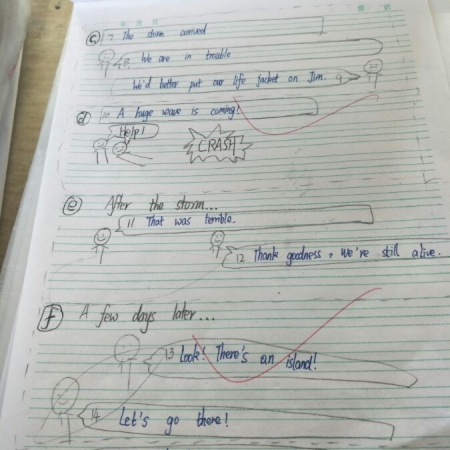 c 7 The storm arrived
8 We are in trouble
We'd better put our life jacket on Jim. 9
d 10 A huge wave is coming!
Help!
CRASH
e After the storm...
11 That was terrible.
12 Thank goodness, we're still alive.
f A few days later...
13 Look! There's an island!
14 Let's go there!